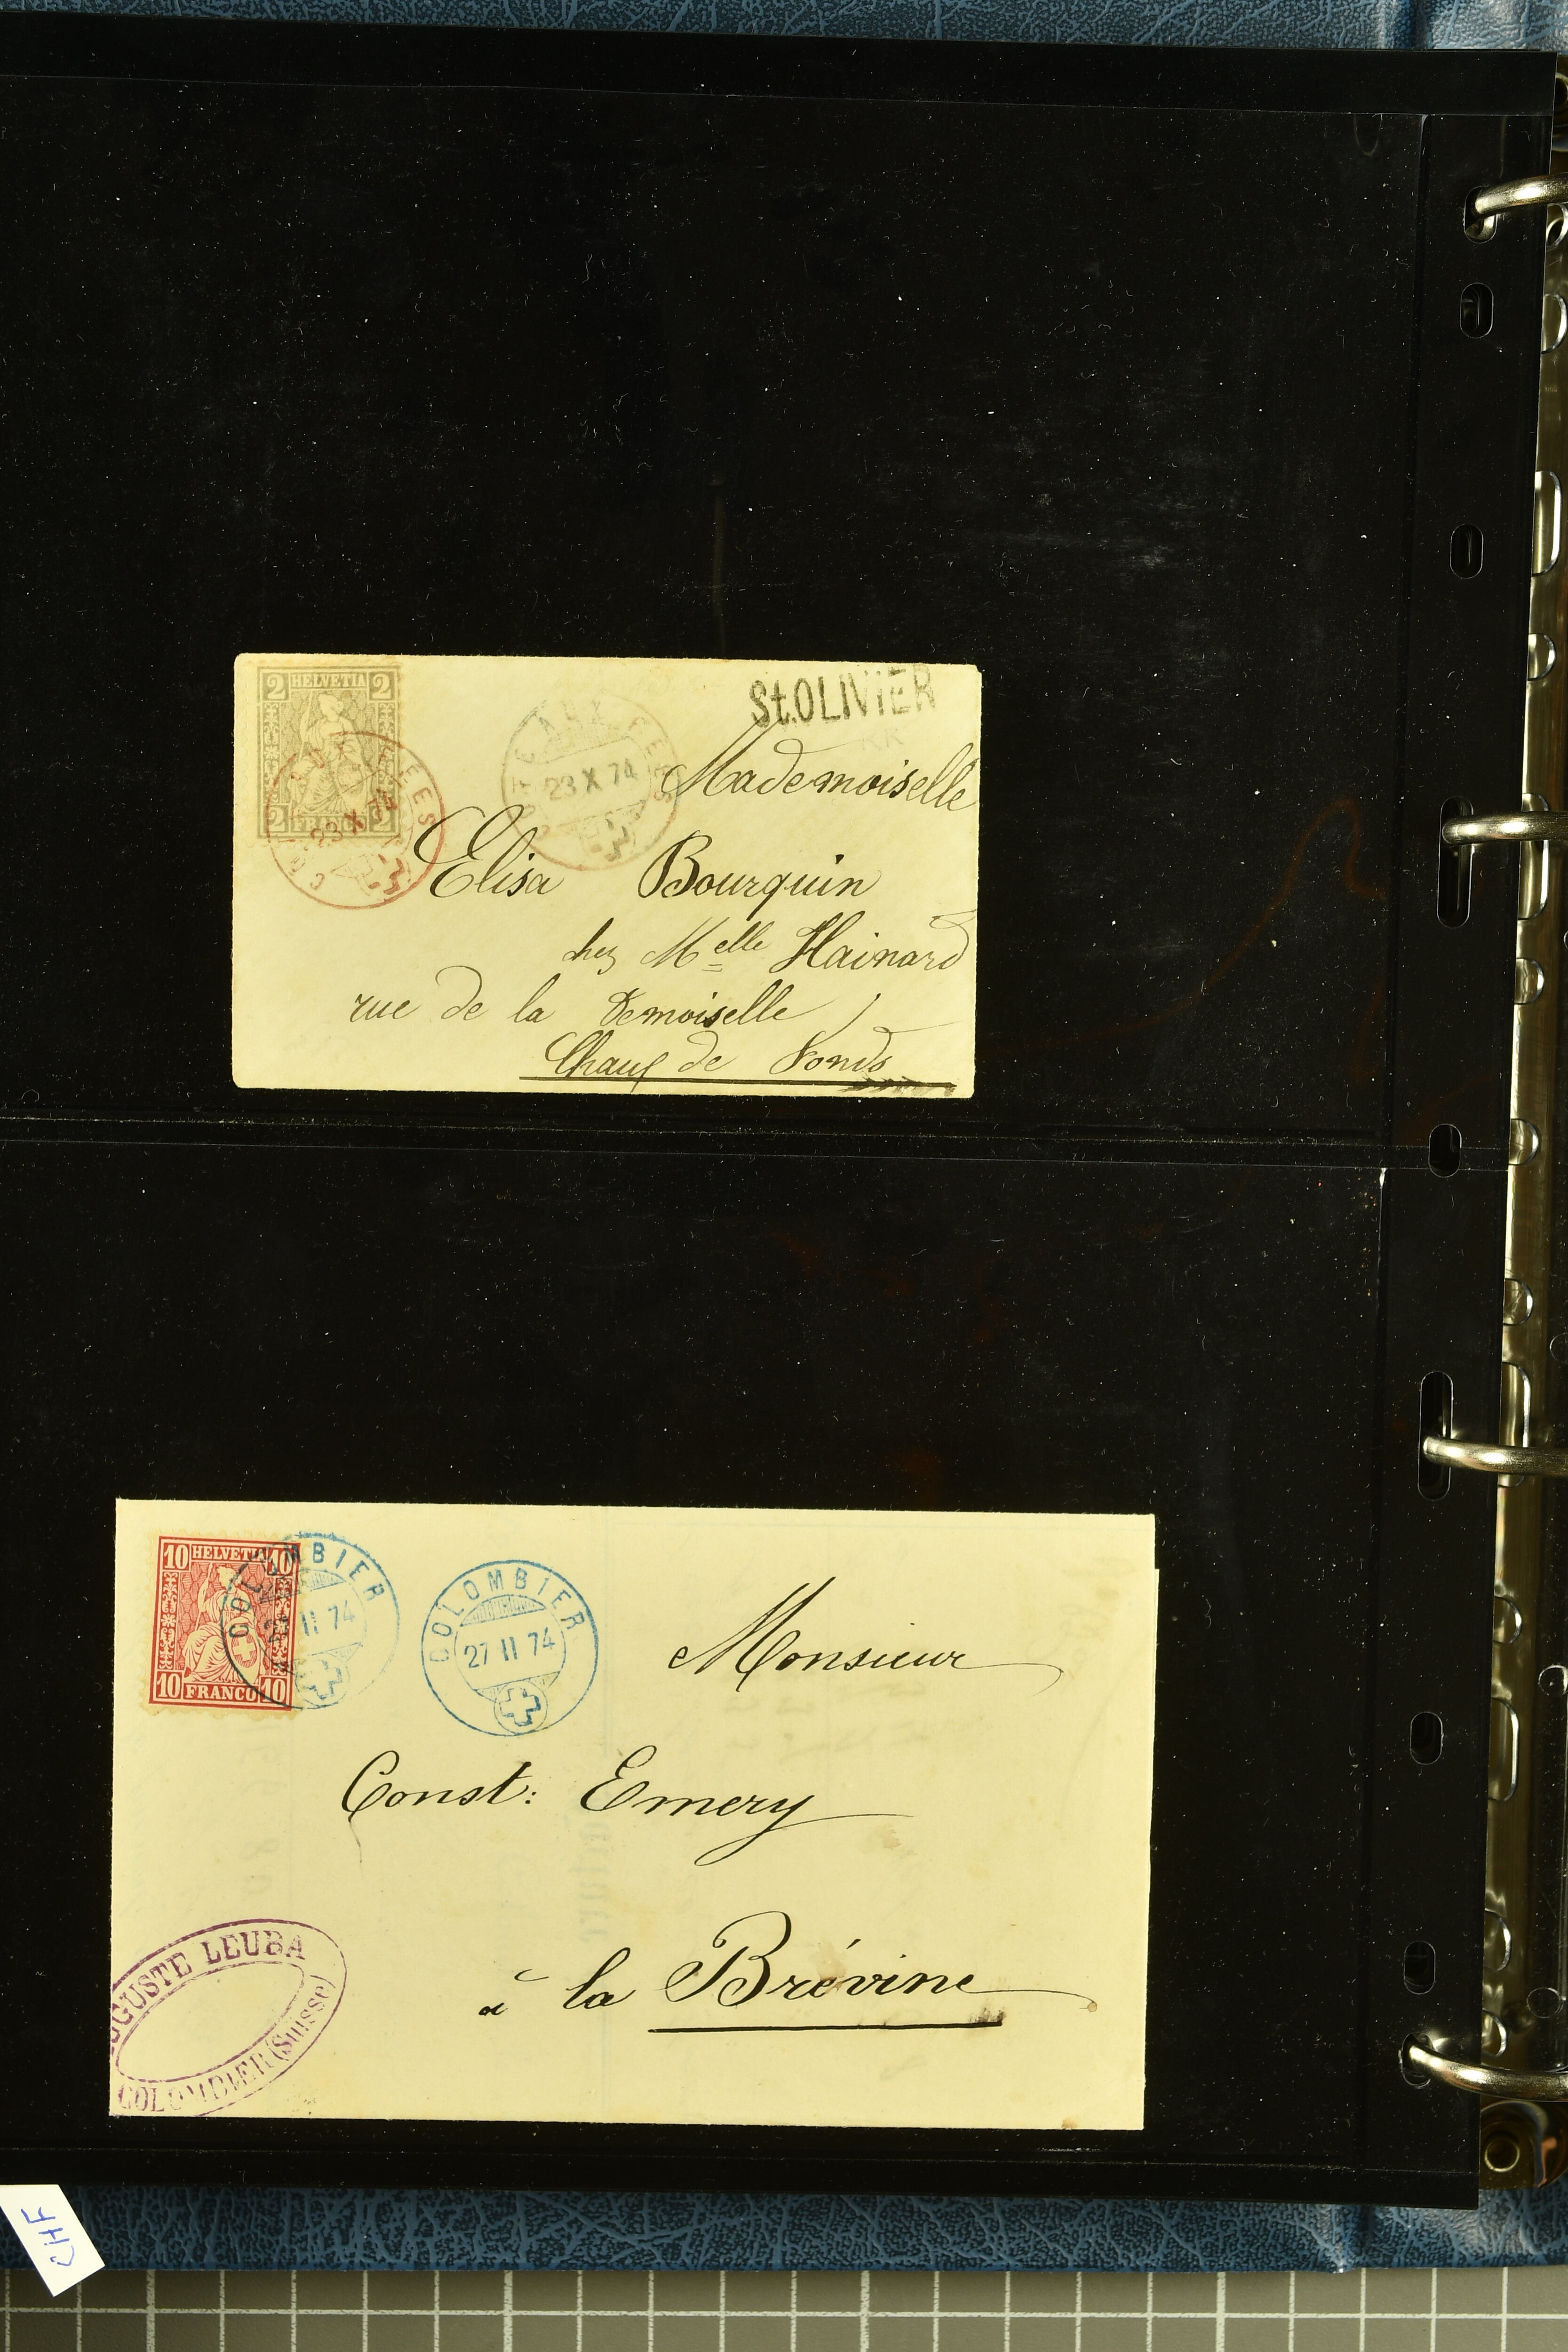 2 HELVETIA 2
2 FRANCO 2
23 X 74
23 X 74
St. OLIVIER
Mademoiselle
Elisa Bourquin
chez Melle Hainard
rue de la Demoiselle
Chaux de Fonds
10 HELVETIA 10
10 FRANCO 10
COLOMBIER
II 74
COLOMBIER
27 II 74
Monsieur
Const: Emery
à la Brévine
AUGUSTE LEUBA
COLOMBIER (Suisse)
CHF